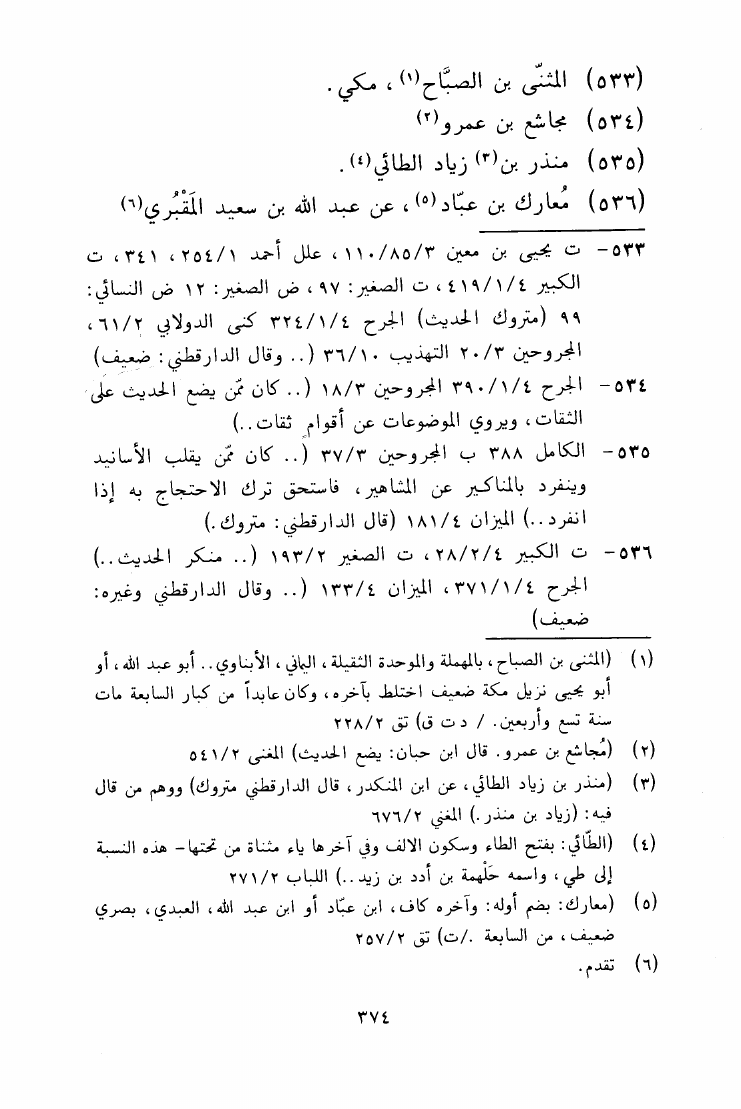 (٥٣٣) المثنّى بن الصبَّاح(١)، مكي.
(٥٣٤) مجاشع بن عمرو(٢)
(٥٣٥) منذر بن(٣) زياد الطائي(٤).
(٥٣٦) مُعارك بن عبّاد(٥)، عن عبد الله بن سعيد المَقْبُري(٦)
٥٣٣- ت يحيى بن معين ١١٠/٨٥/٣، علل أحمد ٢٥٤/١، ٣٤١، ت
الكبير ٤١٩/١/٤، ت الصغير: ٩٧، ض الصغير: ١٢ ض النسائي:
٩٩ (متروك الحديث) الجرح ٣٢٤/١/٤ كنى الدولابي ٦١/٢،
المجروحين ٢٠/٣ التهذيب ٣٦/١٠ (.. وقال الدارقطني: ضعيف)
٥٣٤- الجرح ٣٩٠/١/٤ المجروحين ١٨/٣ (.. كان ممّن يضع الحديث على
الثقات، ويروي الموضوعات عن أقوامٍ ثقات..)
٥٣٥- الكامل ٣٨٨ ب المجروحين ٣٧/٣ (.. كان ممّن يقلب الأسانيد
وينفرد بالمناكير عن المشاهير، فاستحق ترك الاحتجاج به إذا
انفرد..) الميزان ١٨١/٤ (قال الدارقطني: متروك.)
٥٣٦- ت الكبير ٢٨/٢/٤، ت الصغير ١٩٣/٢ (.. منكر الحديث..)
الجرح ٣٧١/١/٤، الميزان ١٣٣/٤ (.. وقال الدارقطني وغيره:
ضعيف)
(١) (المثنى بن الصباح، بالمهملة والموحدة الثقيلة، اليماني، الأبناوي.. أبو عبد الله، أو
أبو يحيى نزيل مكة ضعيف اختلط بآخره، وكان عابداً من كبار السابعة مات
سنة تسع وأربعين. / د ت ق) تق ٢٢٨/٢
(٢) (مُجاشع بن عمرو. قال ابن حبان: يضع الحديث) المغنى ٥٤١/٢
(٣) (منذر بن زياد الطائي، عن ابن المنكدر، قال الدارقطني متروك) ووهم من قال
فيه: (زياد بن منذر.) المغني ٦٧٦/٢
(٤) (الطّائي: بفتح الطاء وسكون الالف وفي آخرها ياء مثناة من تحتها- هذه النسبة
إلى طي، واسمه حَلْهمة بن أدد بن زيد..) اللباب ٢٧١/٢
(٥) (معارك: بضم أوله: وآخره كاف، ابن عبّاد أو ابن عبد الله، العبدي، بصري
ضعيف، من السابعة ./ت) تق ٢٥٧/٢
(٦) تقدم.
٣٧٤